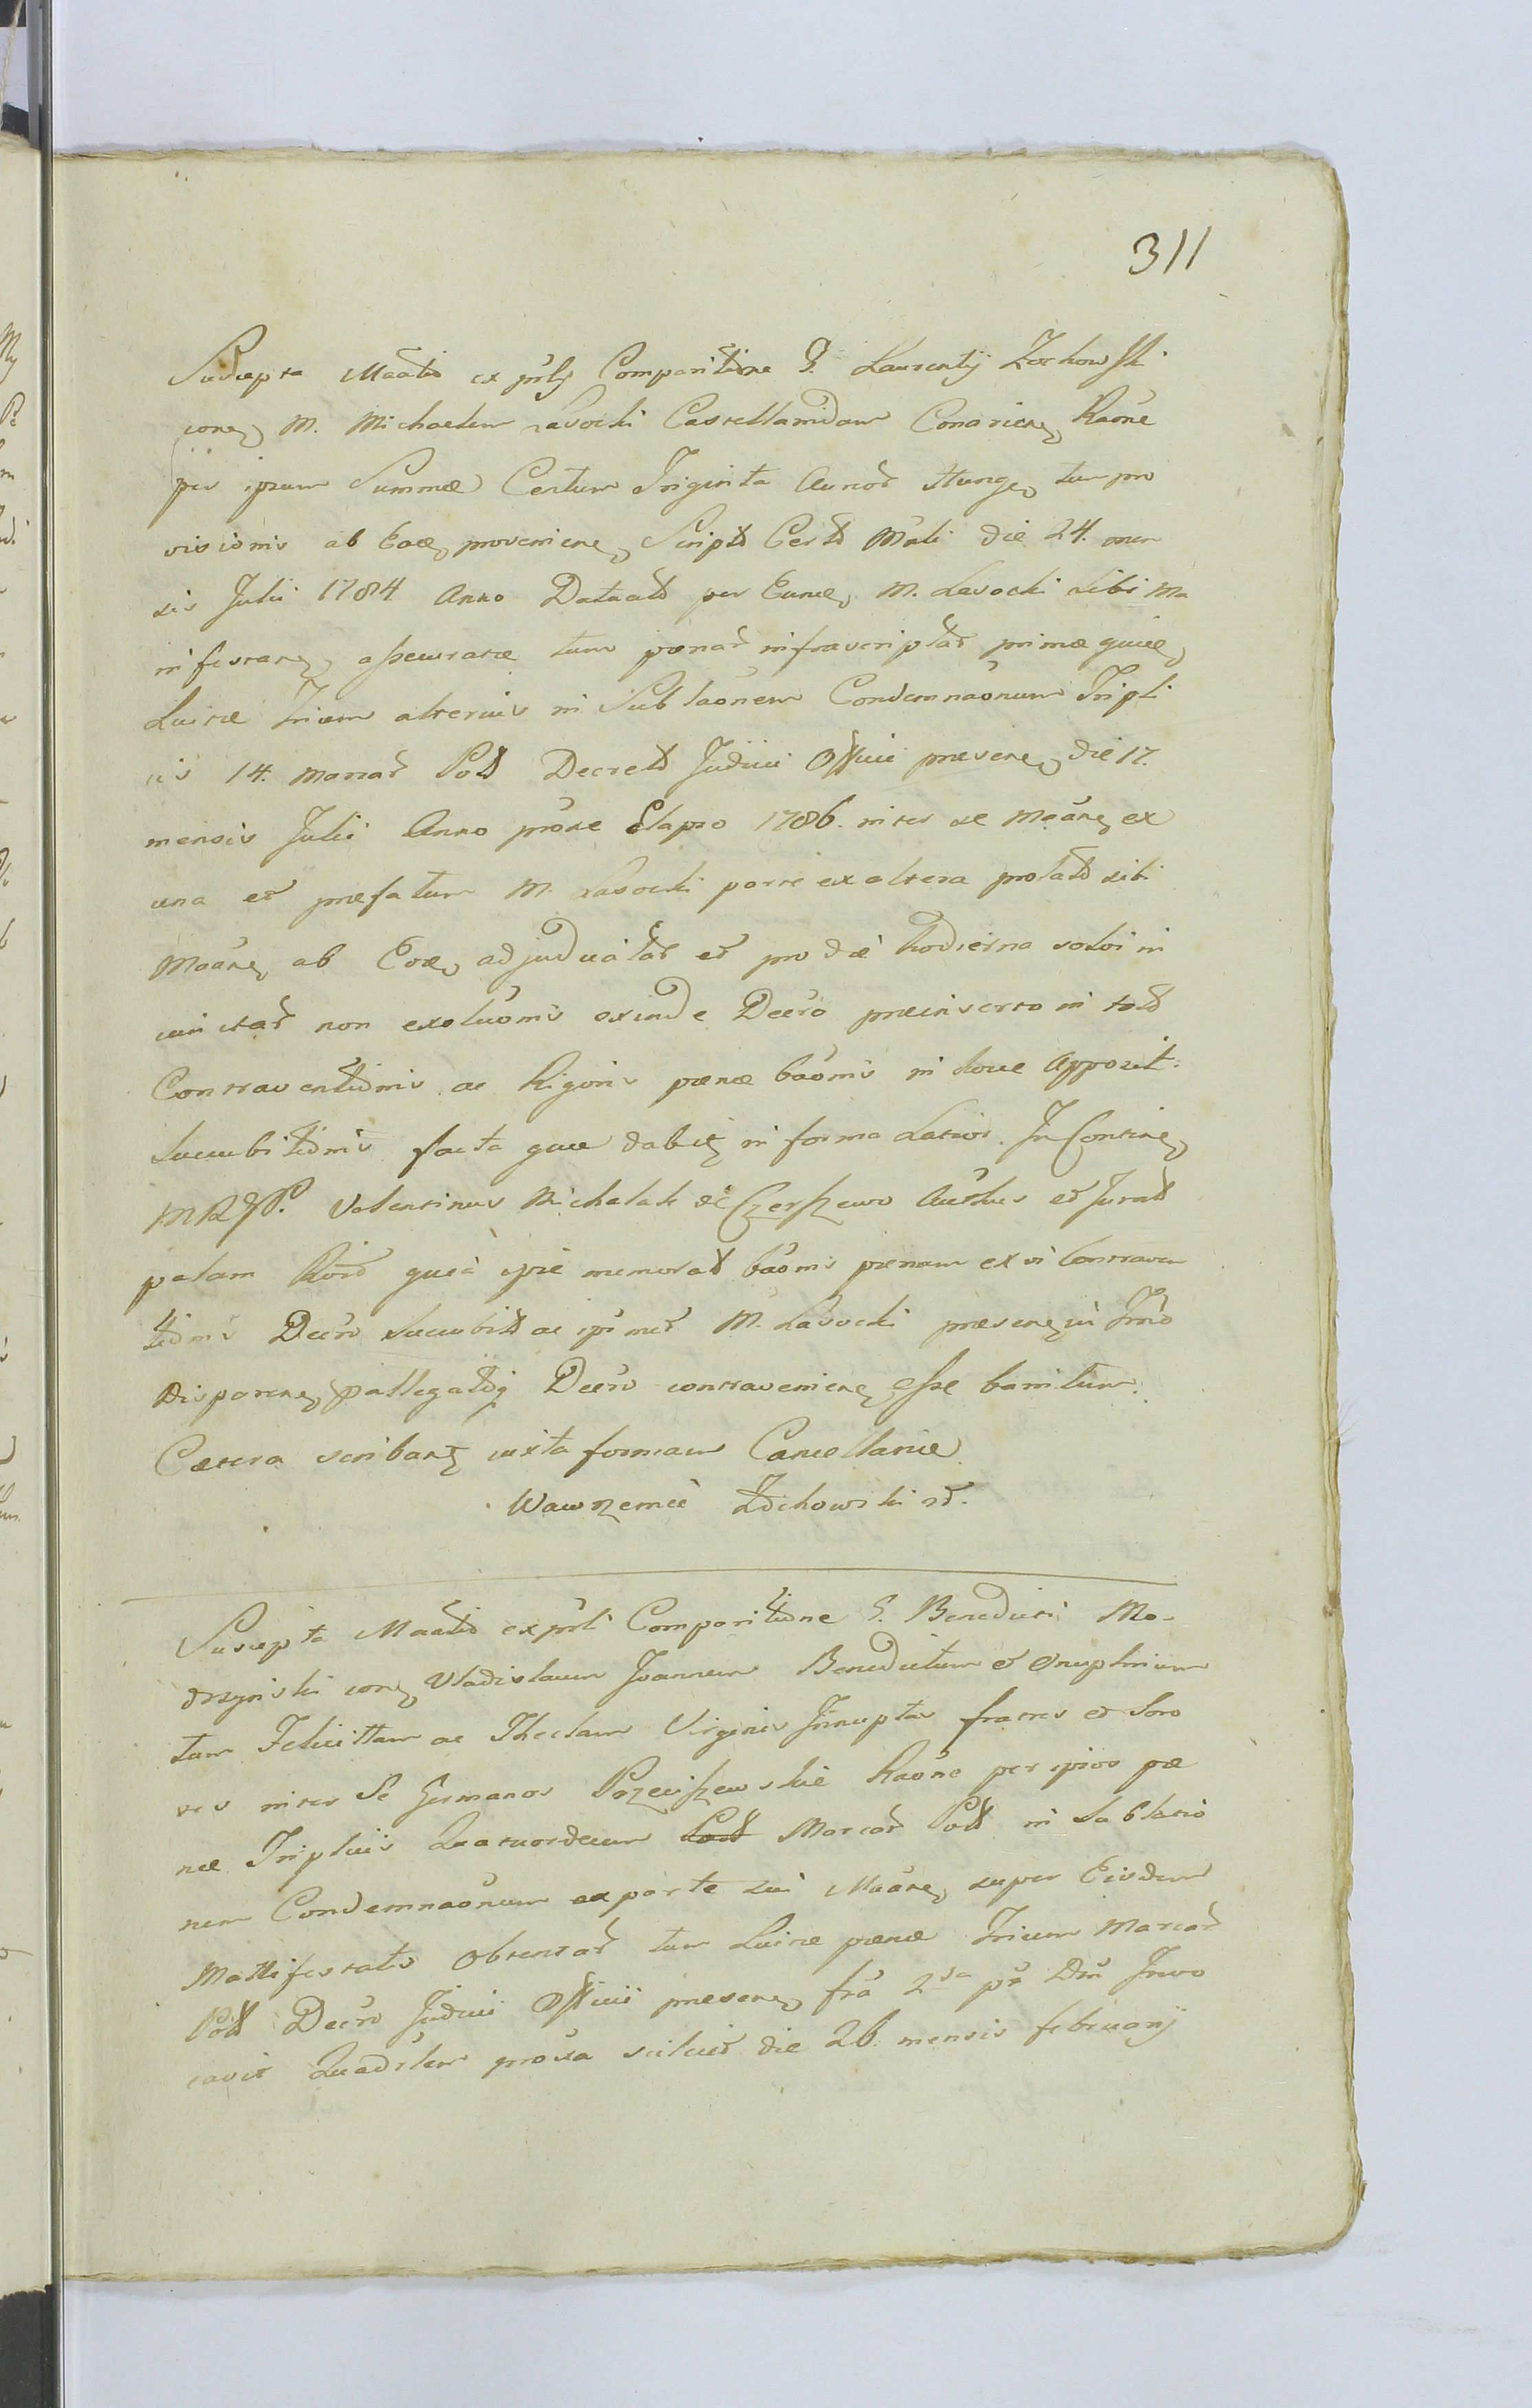 311
Suscepta Maatio ex pnlj Comparitione G. Laurentij Zochowski
cone M. Michaelem Lasocki Castellanidam Conariens Raone
per ipsum Summæ Centum Triginta Auror Hunge tum pro
visionis ab Eade provenien Script Cert Mali die 24. men
sis Julii 1784 Anno Dataat per Eunde M. Lasocki sibi Ma
nifestan assecuratæ tum pœnar infrascriptar primæ quide
Luitæ trium alterius in Sublaonem Condemnaonum Tripli
cis 14. Marcar Poll Decreto Judicii Officii præsens die 17.
mensis Julii Anno proxe Elapso 1786. inter se Maane ex
una et præfatum M. Lasocki parte ex altera prolato sibi
Maane ab Eode adjudicatar et pro die hodierna solvi in
cunctar non exolutionis exinde Decro præinserto in toto
Contraventionis ac Rigoris pœnæ baonis in Apposit.
Sucubitionis facta quæ dabit in forma Latior. In Contine
MRGP. Valentinus Michalak de Czerszewo Aulhus et Jurat
palam Rord quia ipse memorat baonis pœnam ex vi Contraven
tionis Decro Sucubit ac ipsmet M. Lasocki præsens in Trno
Disparens pallegatoq Decro contravenien esse banitum.
Cætera scribant iuxta formam Cancellariæ
Wawrzeniec Zochowski
Suscepta Maatio ex pnli Comparitione G. Benedicti Mo-
drzynski cone Vladislaum Joannem Benedictum et Onuphrium
tum Felicittam ac Theclam Virgines Innuptas fratres et Soro
res inter Se Germanos Przeciszewskie Raone per ipsos pœ
næ Triplicis Quatuordecim Marcar Poll in Sablatio
nem Condemnaonum ex parte sui Maane super Eisdem
Manifestatis Obtentar tum Luitæ pœnæ Trium Marcar
Poll Decro Judicii Officii præsens fra 2da ps Dm Invo
cavit Quadrlem proxa scilicet die 26. mensis februarij